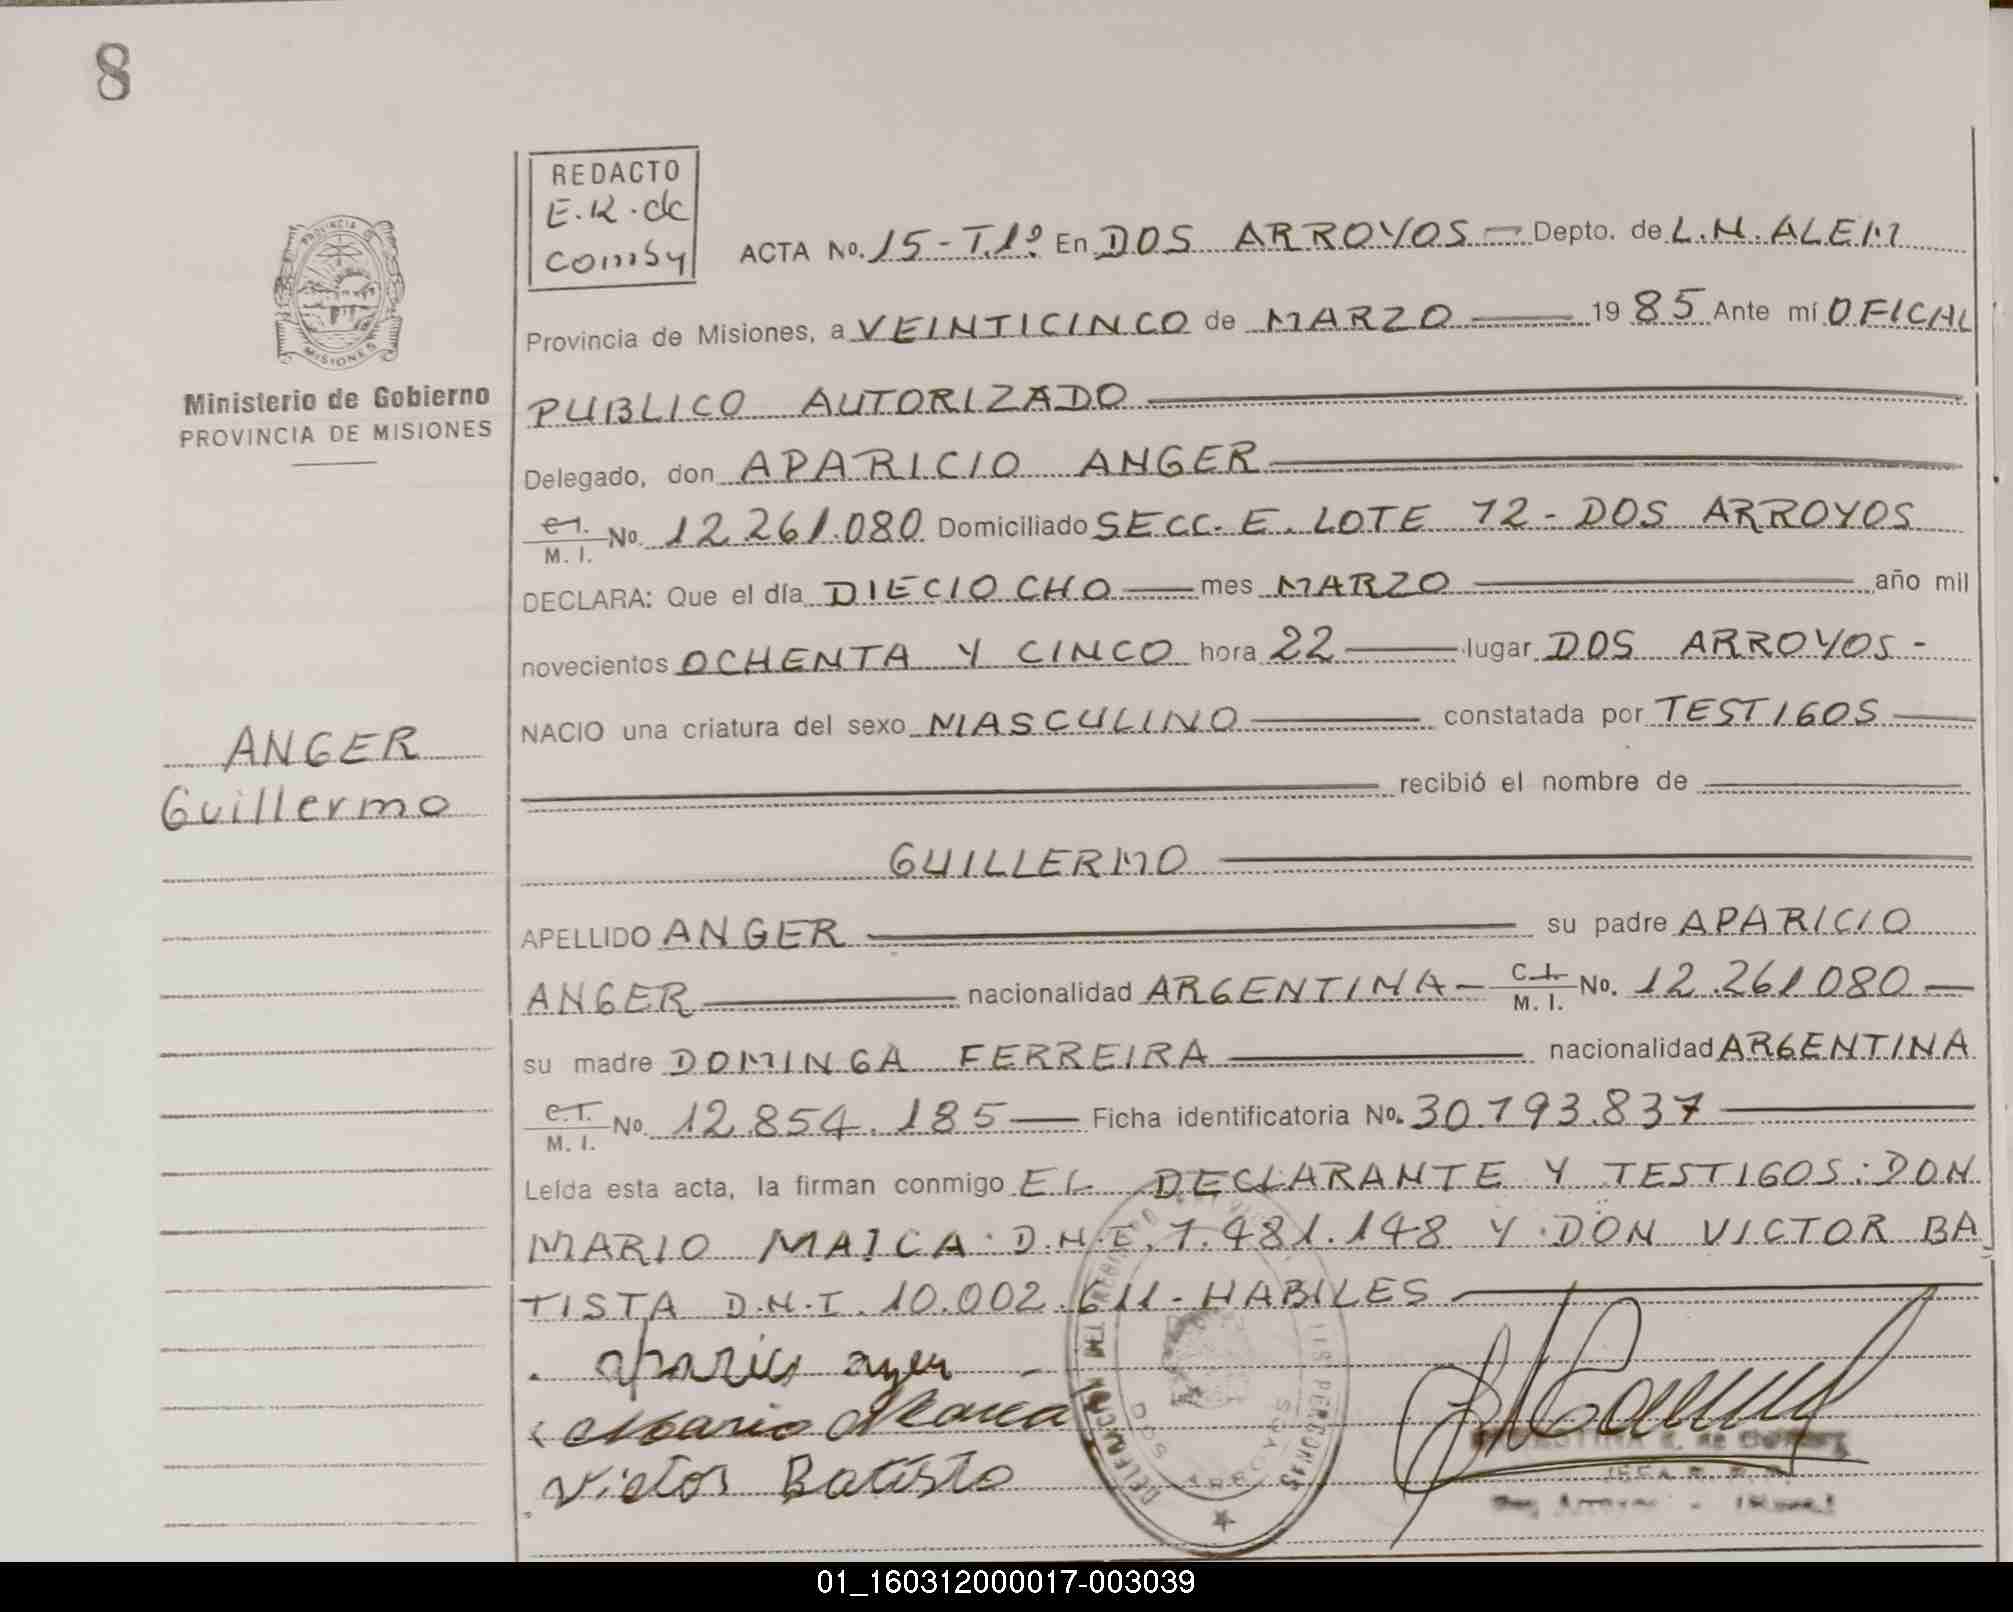 8
REDACTO
E.R. de
ACTA No. 15-T.1º En DOS ARROYOS — Depto. de L.N. ALEM
Provincia de Misiones, a VEINTICINCO de MARZO — 19 85 Ante mí OFICIAL
PUBLICO AUTORIZADO
Delegado, don APARICIO ANGER
C.I.
M. I. No. 12.261.080 Domiciliado SECC. E. LOTE 72 - DOS ARROYOS
DECLARA: Que el día DIECIOCHO — mes MARZO — año mil
novecientos OCHENTA Y CINCO hora 22 — lugar DOS ARROYOS -
NACIO una criatura del sexo MASCULINO — constatada por TESTIGOS —
recibió el nombre de
GUILLERMO
APELLIDO ANGER — su padre APARICIO
ANGER — nacionalidad ARGENTINA — C.I.
M. I. No. 12.261.080 —
su madre DOMINGA FERREIRA — nacionalidad ARGENTINA
C.I.
M. I. No. 12.854.185 — Ficha identificatoria No. 30.793.837 —
Leída esta acta, la firman conmigo EL DECLARANTE Y TESTIGOS: DON
MARIO D.N.I. 7.481.148 Y DON VICTOR BA
TISTA D.N.I. 10.002.611 - HABILES
Victor Batista
PROVINCIA DE
MISIONES
Ministerio de Gobierno
PROVINCIA DE MISIONES
ANGER
Guillermo
DOS ARROYOS
01_160312000017-003039